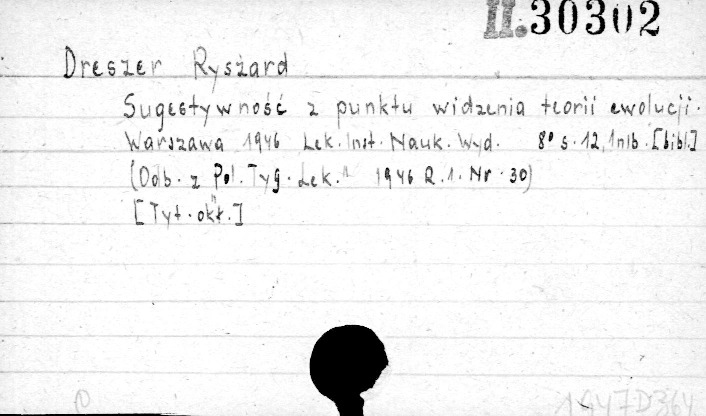 II. 30302
Dreszer Ryszard
Sugestywność z punktu widzenia teorii ewolucji.
Warszawa 1946 Lek. Inst. Nauk. Wyd. 8° s. 12, 1 nlb. [bibl.]
(Odb. z "Pol. Tyg. Lek." 1946 R. 1. Nr. 30)
[Tyt. okł.]